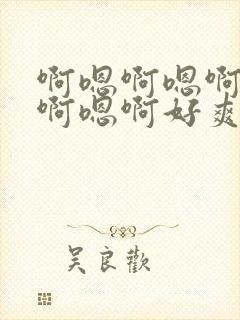 啊嗯啊嗯啊
啊嗯啊好爽
吴良歡